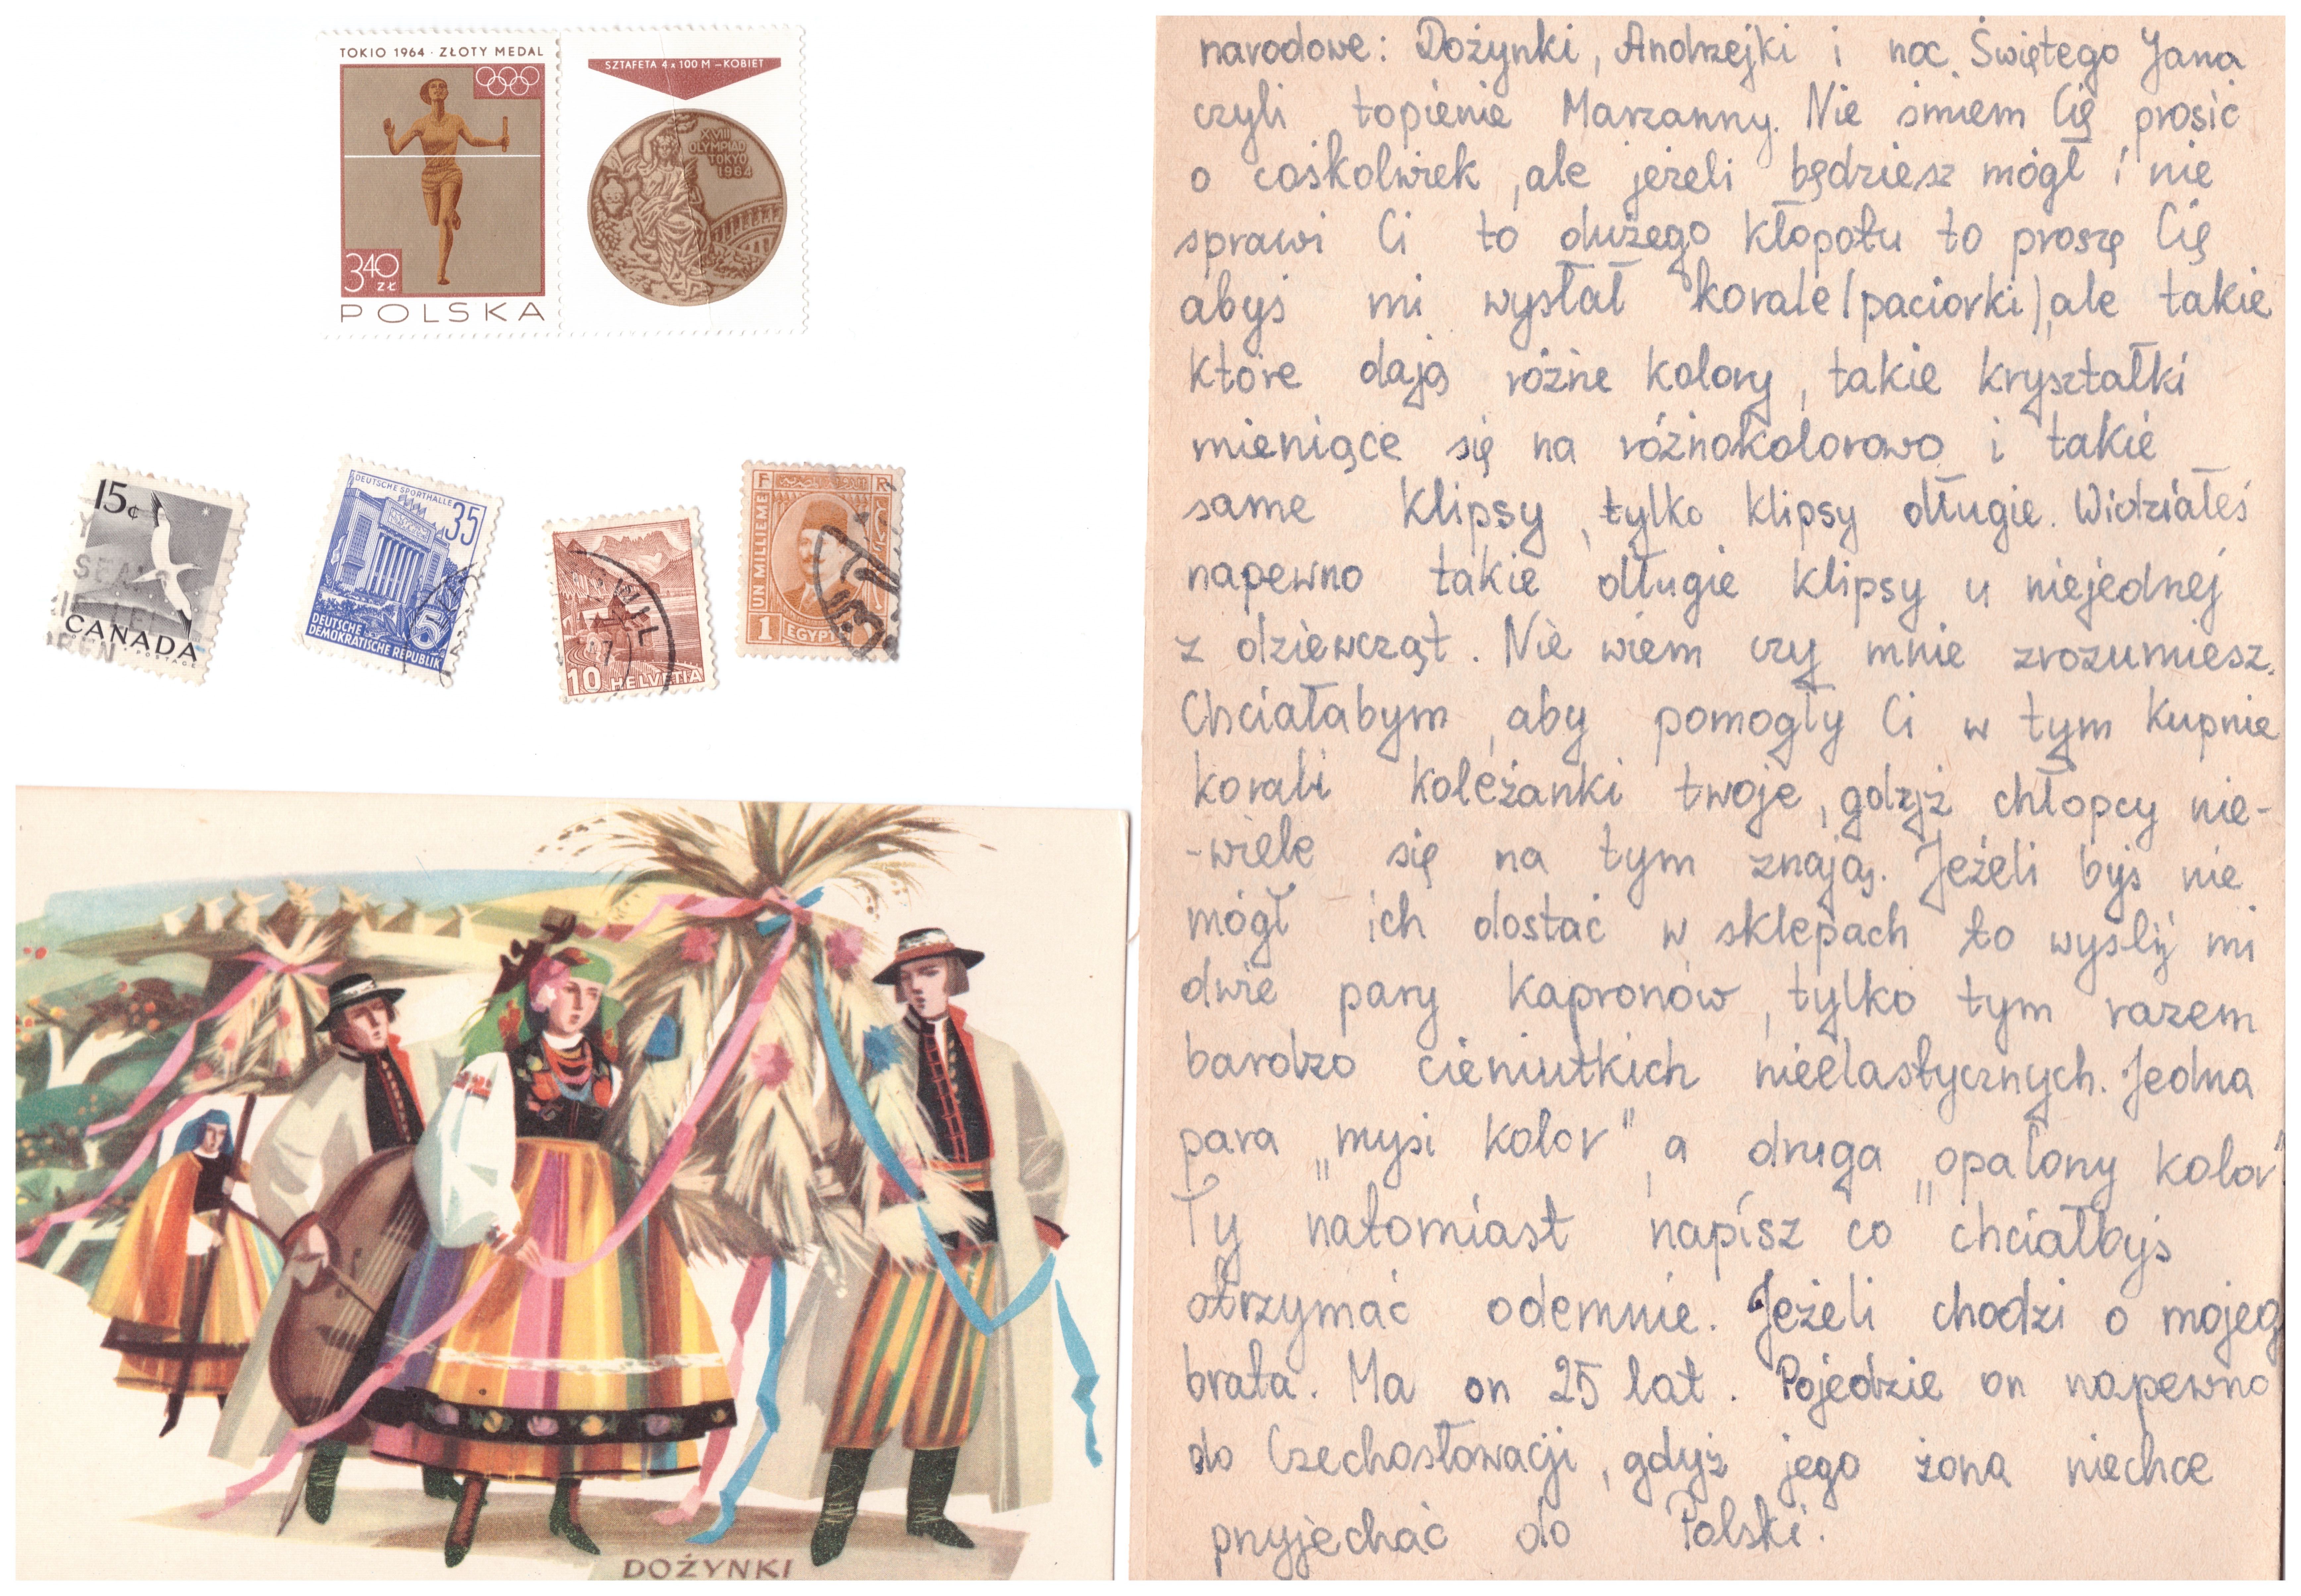 TOKIO 1964 · ZŁOTY MEDAL
340 ZŁ
POLSKA
SZTAFETA 4 x 100 M – KOBIET
XVIII
OLYMPIAD
TOKYO
1964
15¢
CANADA
POSTAGE
DEUTSCHE SPORTHALLE
35
5
DEUTSCHE
DEMOKRATISCHE REPUBLIK
10 HELVETIA
UN MILLIEME
1
EGYPTE
DOŻYNKI
narodowe: Dożynki, Andrzejki i noc Świętego Jana
czyli topienie Marzanny. Nie śmiem Cię prosić
o cośkolwiek, ale jeżeli będziesz mógł i nie
sprawi Ci to dużego kłopotu to proszę Cię
abyś mi wysłał korale (paciorki), ale takie
które dają różne kolory, takie kryształki
mieniące się na różnokolorowo i takie
same klipsy, tylko klipsy długie. Widziałeś
napewno takie długie klipsy u niejednej
z dziewcząt. Nie wiem czy mnie zrozumiesz.
Chciałabym, aby pomogły Ci w tym kupnie
korali koleżanki twoje, gdyż chłopcy nie-
-wiele się na tym znają. Jeżeli byś nie
mógł ich dostać w sklepach to wyślij mi
dwie pary kapronów, tylko tym razem
bardzo cieniutkich nieelastycznych. Jedna
para „mysi kolor", a druga „opalony kolor"
Ty natomiast napisz co chciałbyś
otrzymać odemnie. Jeżeli chodzi o mojeg
brata. Ma on 25 lat. Pojedzie on napewno
do Czechosłowacji, gdyż jego żona niechce
przyjechać do Polski.